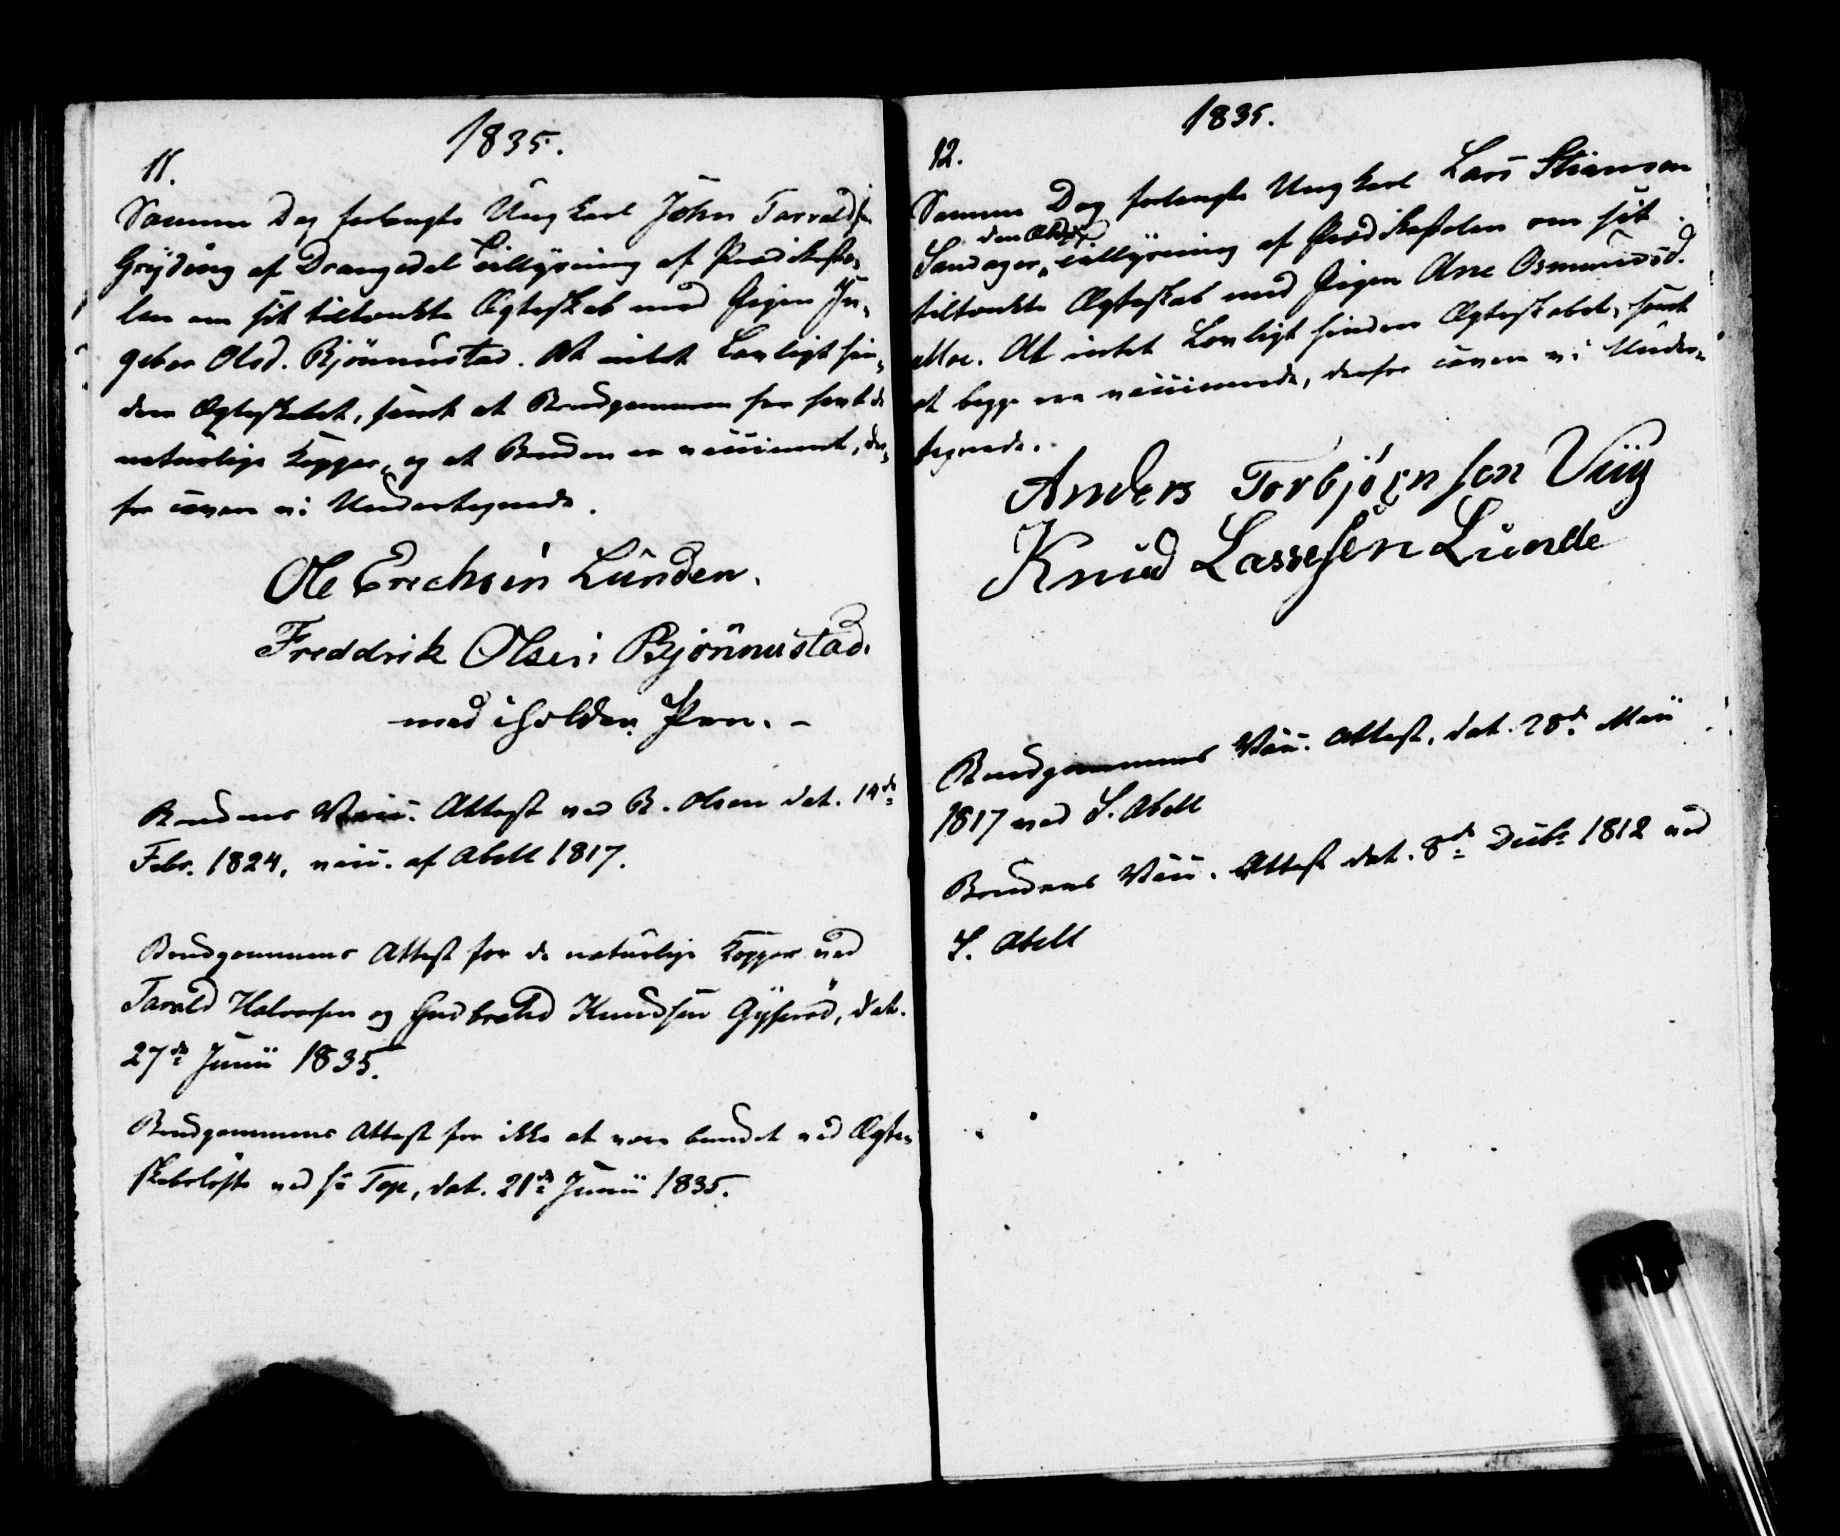 1835.
11.
Samme Dag forlangte Ungkarl John Tarraldsen
Gryting af Drangedal Tillysning af Prædikesto-
len om sit tiltænkte Ægteskab med Pigen In-
geber Olsd. Bjönnustad. At intet Lovligt hin-
drer Ægteskabet, samt at Brudgommen har havt de
naturlige Kopper, og at Bruden er vaccineret, der-
for caverer vi Undertegnede.
Ole Erechsen Lunden.
Freddrik Olsen Bjönnustad.
med iholden Pen. -
Brudens Vacc. Attest ved B. Olsen dat. 14de
Febr. 1824, vacc. af Abell 1817.
Brudgommens Attest for de naturlige Kopper ved
Tarald Halvorsen og Gudbrand Knudsen dat.
27de Junii 1835.
Brudgommens Attest for ikke at være bundet ved Ægte-
skabsløfte ved Hr Top, dat. 21de Junii 1835.
1835.
12.
Samme Dag forlangte Ungkarl Lars Stianson
den Ældre
Sandager Tillysning af Prædikestolen om sit
tiltænkte Ægteskab med Pigen Ane Osmundsd.
Moe. At intet Lovligt hindrer Ægteskabet, samt
at begge ere vaccinerede, derfor caverer vi Under-
tegnede.
Anders Torbjørnson Viig
Knud Lassesen Lunde
Brudgommens Vacc. Attest, dat. 28de Maii
1817 ved S. Abell
Brudens Vacc. Attest dat. 8de Decbr 1812 ved
S. Abell